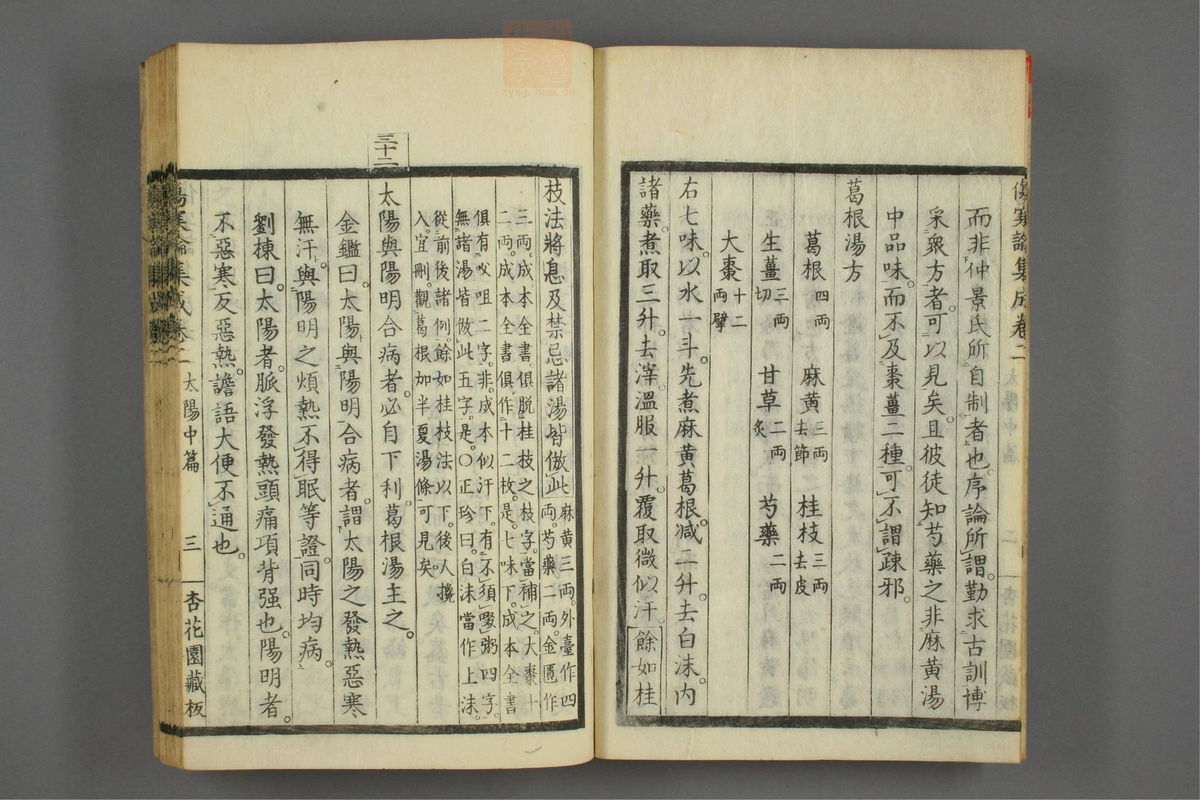 傷寒論集成卷二
而非仲景氏所自制者也。序論所謂。勤求古訓博
采衆方者。可以見矣。且彼徒知芍藥之非麻黃湯
中品味。而不及棗薑二種。可不謂疎邪。
葛根湯方
葛根四兩 麻黃三兩去節 桂枝三兩去皮
生薑三兩切 甘草二兩炙 芍藥二兩
大棗十二兩擘
右七味。以水一斗。先煮麻黃葛根。減二升。去白沫。內
諸藥。煮取三升。去滓。溫服一升。覆取微似汗。餘如桂
枝法將息及禁忌。諸湯皆倣此
麻黃三兩。外臺作四
兩。芍藥二兩。金匱作
三兩。成本全書俱脫桂枝之枝字。當補之。大棗十
二兩。成本全書俱作十二枚。是。七味下。成本全書
俱有㕮咀二字。非。成本似汗下。有不須啜粥四字。
無諸湯皆倣此五字。是。○正珍曰。白沫當作上沫。
從前後諸例。餘如桂枝法以下。後人攙
入。宜刪。觀葛根加半夏湯條可見矣。
三十二
太陽與陽明合病者。必自下利。葛根湯主之。
金鑑曰。太陽與陽明合病者。謂太陽之發熱惡寒
無汗。與陽明之煩熱不得眠等證。同時均病。
劉棟曰。太陽者。脈浮發熱頭痛項背强也。陽明者。
不惡寒反惡熱。譫語大便不通也。
傷寒論集成卷二 太陽中篇 三 杏花園藏板